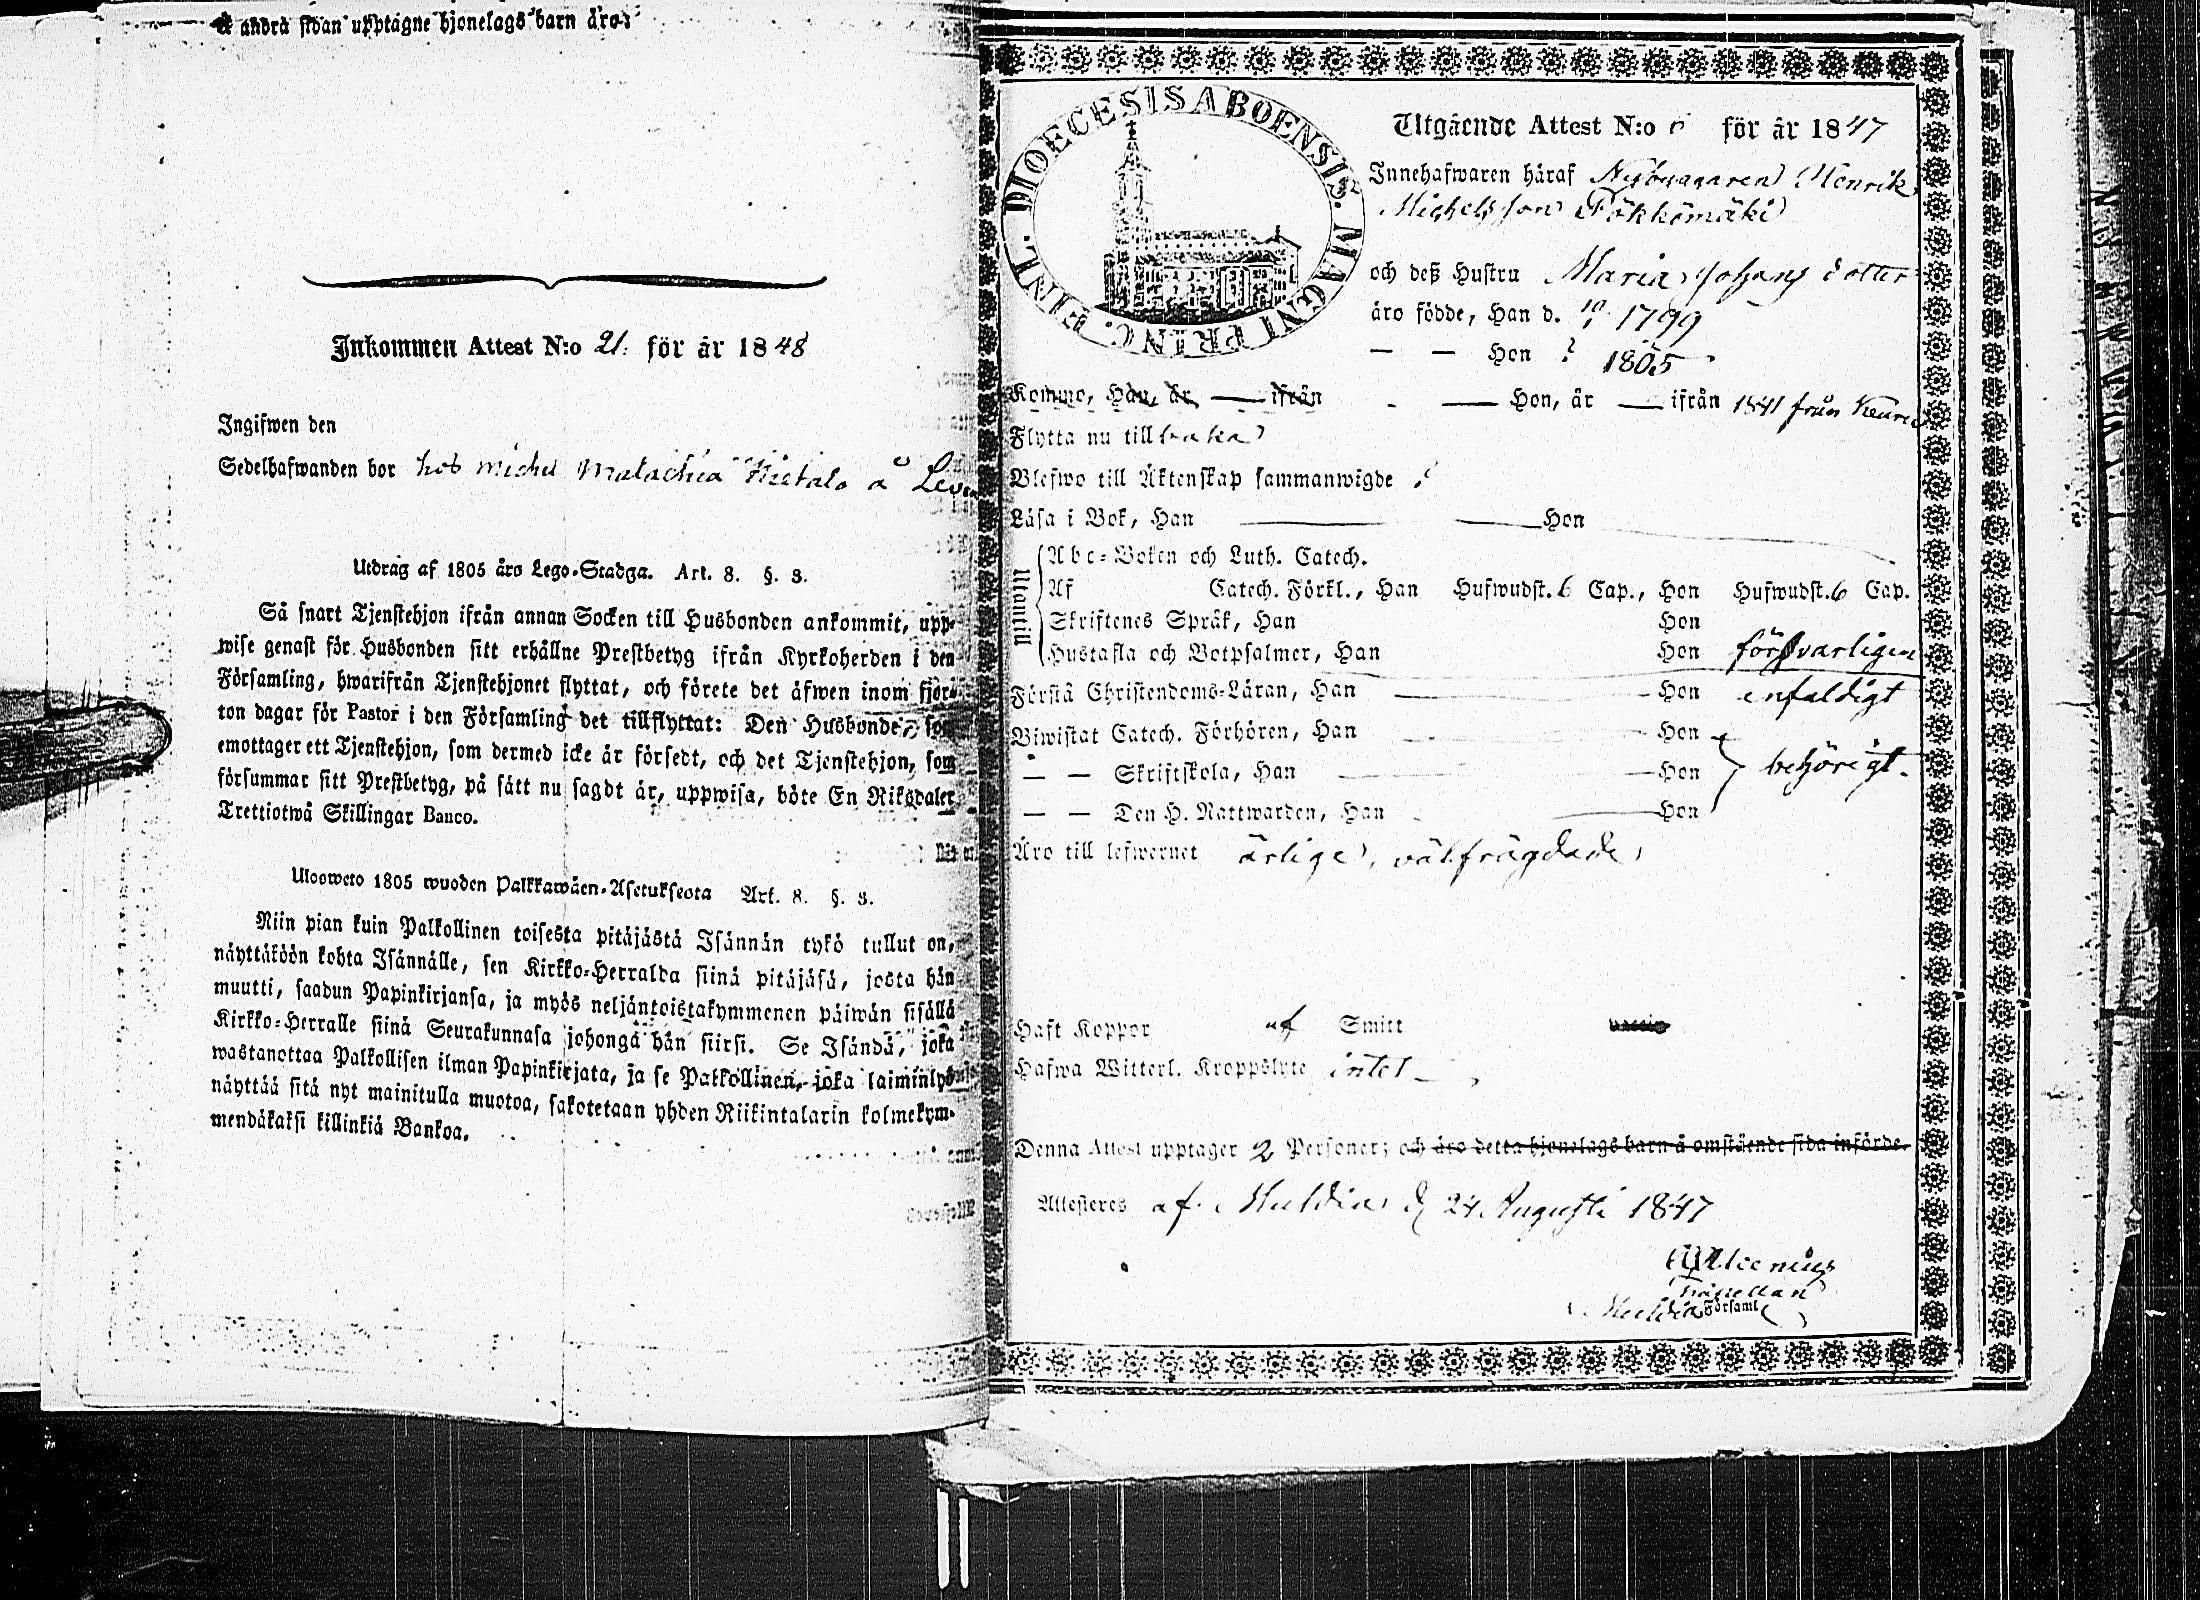 å andra sidan upptagne hjonelags barn äro:
Inkommen Attest N:o 21. för år 1848
Ingifwen den
Sedelhafwanden bor hos Michel Malachia Hietalo å
Utdrag af 1805 åro Lego-Stadga. Art. 8. §. 3.
Så snart Tjenstehjon ifrån annan Socken till Husbonden ankommit, upp-
wise genast för Husbonden sitt erhållne Prestbetyg ifrån Kyrkoherden i den
Församling, hwarifrån Tjenstehjonet flyttat, och förete det äfwen inom fjor-
ton dagar för Pastor i den Församling det tillflyttat: Den Husbonde, som
emottager ett Tjenstehjon, som dermed icke är försedt, och det Tjenstehjon, som
försummar sitt Prestbetyg, på sätt nu sagdt är, uppwisa, böte En Riksdaler
Trettiotwå Skillingar Banco.
Ulosweto 1805 wuoden Palkkawäen-Asetuksesta Art. 8. §. 3.
Niin pian kuin Palkollinen toisesta pitäjästä Isännän tykö tullut on,
näyttäköön kohta Isännälle, sen Kirkko-Herralda siinä pitäjäsä, josta hän
muutti, saadun Papinkirjansa, ja myös neljäntoistakymmenen päiwän sisällä
Kirkko-Herralle siinä Seurakunnasa johonga hän siirsi. Se Isändä, joka
wastanottaa Palkollisen ilman Papinkirjata, ja se Palkollinen, joka laiminlyö
näyttää sitä nyt mainitulla muotoa, sakotetaan yhden Riikintalarin kolmekym-
mendäkaksi killinkiä Bankoa.
DIOECESIS ABOENSIS. MAGNI PRINC. FINL.
Utgående Attest N:o för år 1847
Innehafwaren häraf Nybyggaren Henrik
Michelsson Pökkömäki
och deß Hustru Maria Johans dotter
äro födde, Han d. 1799
— — Hon ? 1805
Kommo, Han, år — ifrån — Hon, år — ifrån 1841 från Keuru
Flytta nu till baka
Blefwo till Äktenskap sammanwigde ?
Läsa i Bok, Han — Hon
Utantill
Abc-Boken och Luth. Catech.
Af Catech. Förkl., Han Hufwudst. 6 Cap., Hon Hufwudst. 6 Cap.
Skriftenes Språk, Han Hon
Hustafla och Botpsalmer, Han Hon försvarligen
Förstå Christendoms-Läran, Han — Hon enfaldigt
Biwistat Catech. Förhören, Han — Hon
— — Skriftskola, Han — Hon behörigt.
— — Den H. Nattwarden, Han — Hon
Äro till lefwernet ärlige, välfrägdade
Haft Koppor af Smitt
Hafwa Witterl. Kroppslyte intet
Denna Attest upptager 2 Personer; och äro detta hjonelags barn å omstående sida införde.
Attesteres af Multia d. 24 Augusti 1847
Multia Församl.